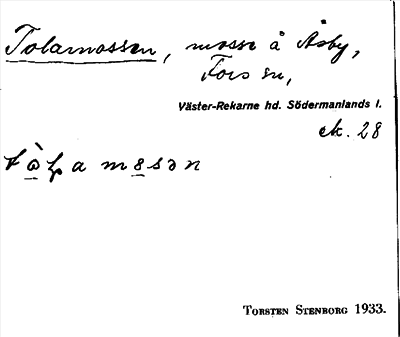 Tolamossen, mosse å Åsby,
Fors sn,
Väster-Rekarne hd. Södermanlands l.
ek. 28
mosən
TORSTEN STENBORG 1933.